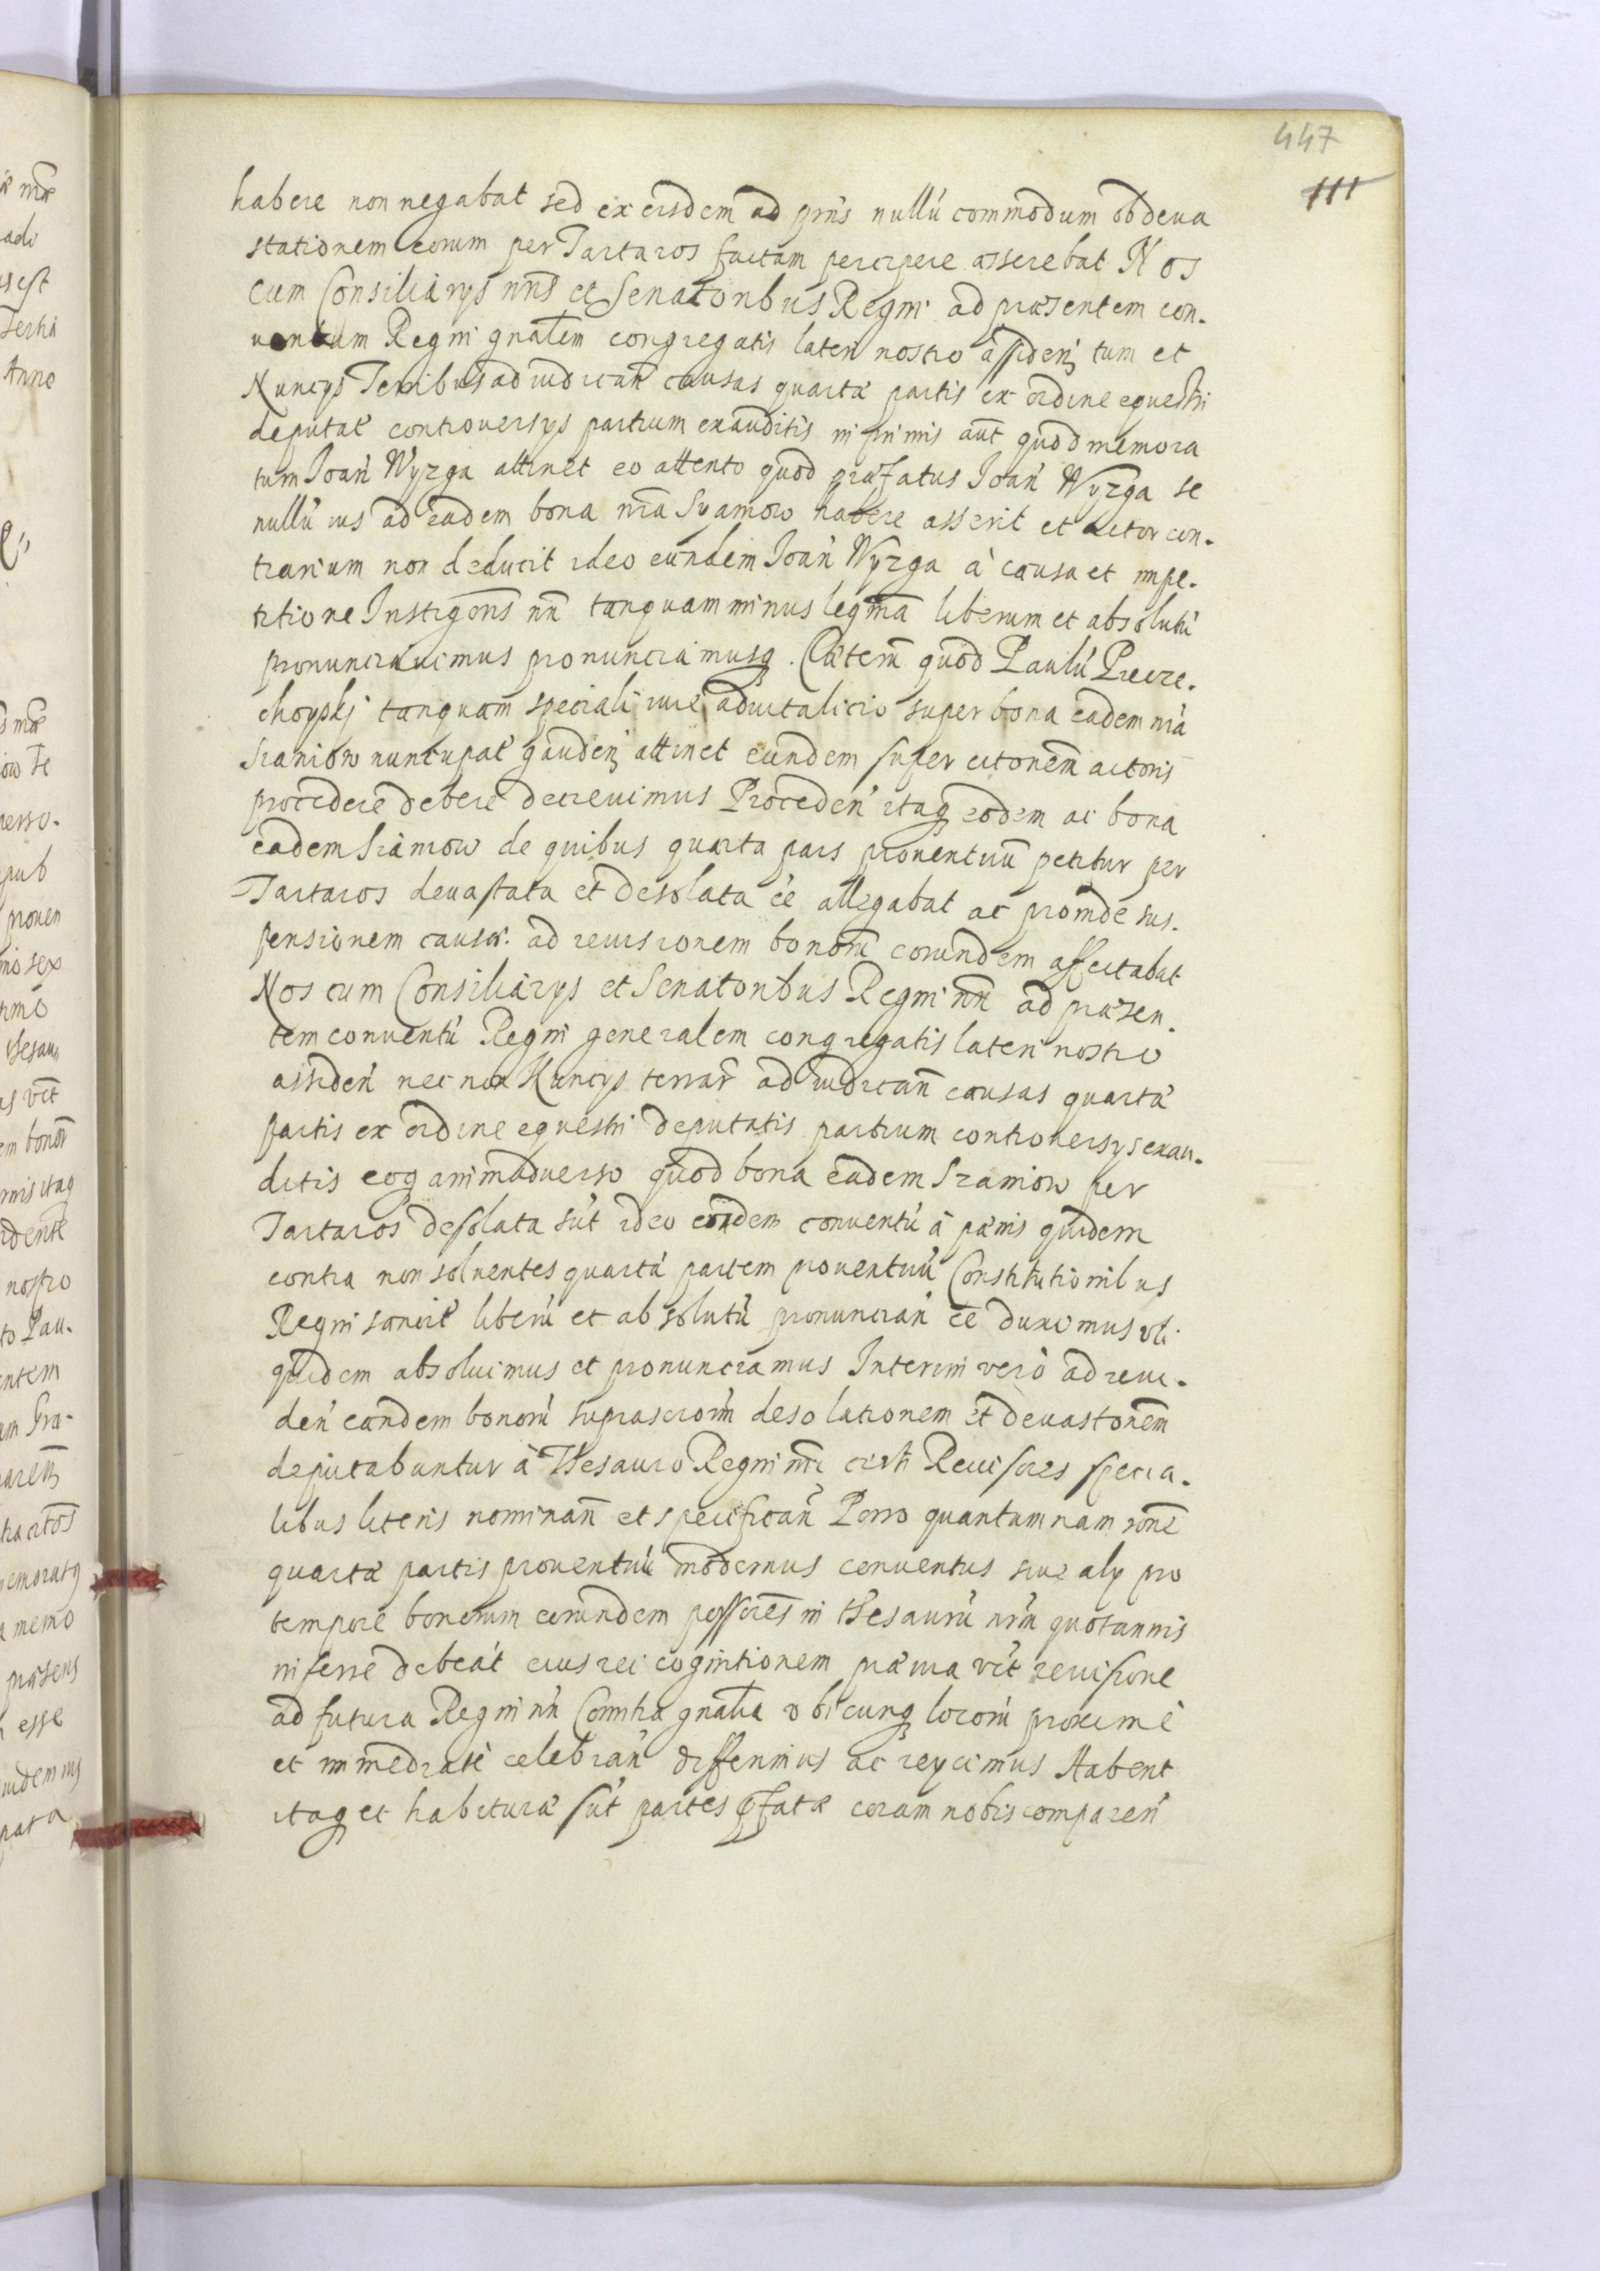 447
111
habere non negabat sed ex eisdem ad prns nullú commodum ob deua
stationem eorum per Tartaros factam percipere asserebat Nos
cum Consiliarys nris et Senatoribus Regni ad præsentem con-
uentum Regni gnalem congregatis lateri nostro assiden tum et
Nuncys Terribus ad iudican causas quartæ partis ex ordine equestri
deputat controuersys partium exauditis in primis aut quod memora
tum Joan Wyzga attinet eo attento quod præfatus Joan Wyzga se
nullú ius ad eadem bona nra habere asserit et actor con-
trarium non deducit ideo eundem Joan Wyzga à causa et impe-
titione Instigoris nri tanquam minus legitima liberum et absolutú
pronunciauimus pronunciamusq. Cæterú quod Paulú
tanquam speciali iure aduitalicio super bona eadem nra
nuncupat gauden attinet eundem super citonem actoris
procedere debere decreuimus Proceden itaq eodem ac bona
eadem de quibus quarta pars prouentuú petitur per
Tartaros deuastata et desolata ee allegabat ac proinde sus-
pensionem causæ ad reuisionem bonorú eorundem affectabat
Nos cum Consiliarys et Senatoribus Regni nri ad præsen-
tem conuentú Regni generalem congregatis lateri nostro
assiden nec non Nuncys terrar ad iudican causas quartæ
partis ex ordine equestri deputatis partium controuersys exau-
ditis eoq animaduerso quod bona eadem per
Tartaros desolata sút ideo eundem conuentú à pænis quidem
contra non soluentes quartá partem prouentuú Constitutionibus
Regni sancit liberú et absolutú pronuncian ee duximus uti
quidem absoluimus et pronunciamus Interim verò ad reui-
den eandem bonorú suprascriorú desolationem et deuastonem
deputabuntur à Thesauro Regni nri certi Reuisores specia-
libus literis nominan et specifican Porro quantum nam rone
quartæ partis prouentuú modernus conuentus siue aly pro
tempore bonorum eorundem possores in thesaurú nrm quotannis
inferre debeát eius rei cognitionem præuia vt reuisione
ad futura Regni nri Comitia gnalia vbicunq locorú proximè
et immediatè celebran differimus ac reycimus Habent
itaq et habituræ sút partes pfatæ coram nobis comparen